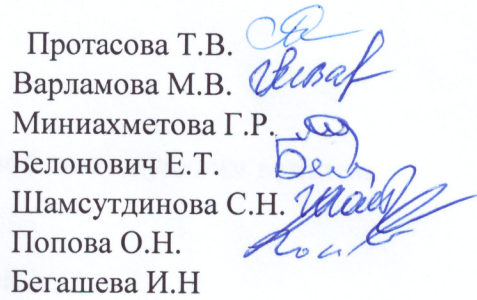 Протасова Т.В.
Варламова М.В.
Миниахметова Г.Р.
Белонович Е.Т.
Шамсутдинова С.Н.
Попова О.Н.
Бегашева И.Н